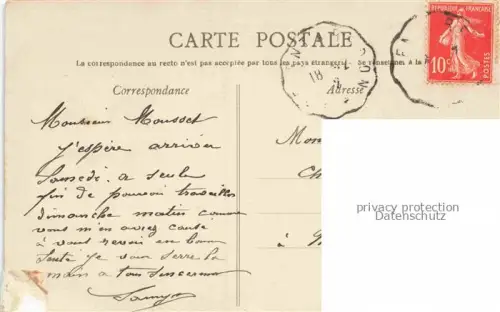 CARTE POSTALE
La correspondance au recto n'est pas acceptée par tous les pays étrangers. Se renseigner à la
Correspondance
Adresse
REPUBLIQUE FRANÇAISE
10c
Monsieur Mousset
J'espère arriver
Samedi a seule
fin de pouvoir travailler
dimanche matin comme
vous m'en avez causé
à vous revoir en bonne
Santé je vous serre la
main a tous
Mon
Ch
à
privacy protection
Datenschutz